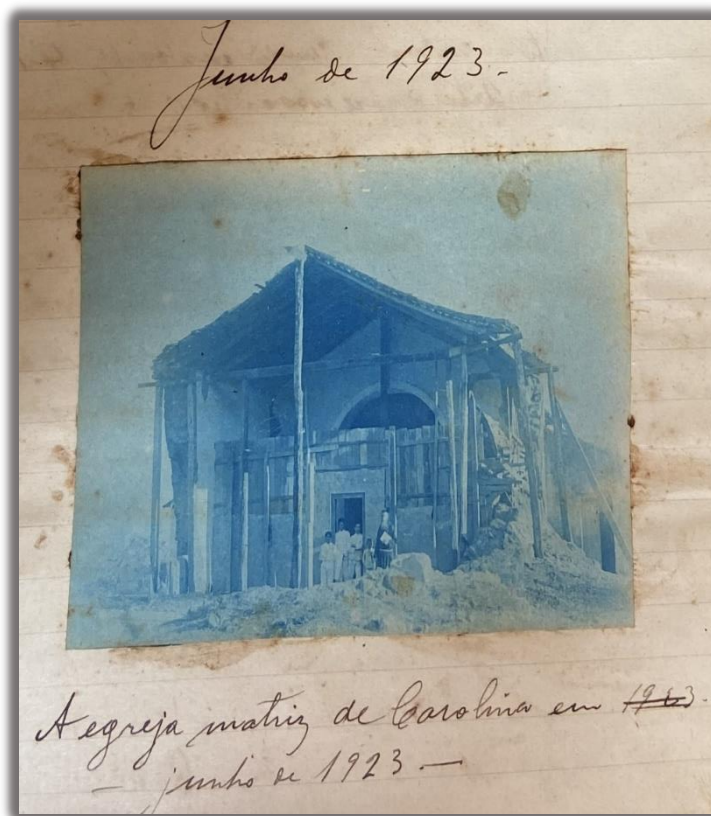 Junho de 1923.
A egreja matriz de Carolina em 1923.
— junho de 1923 —